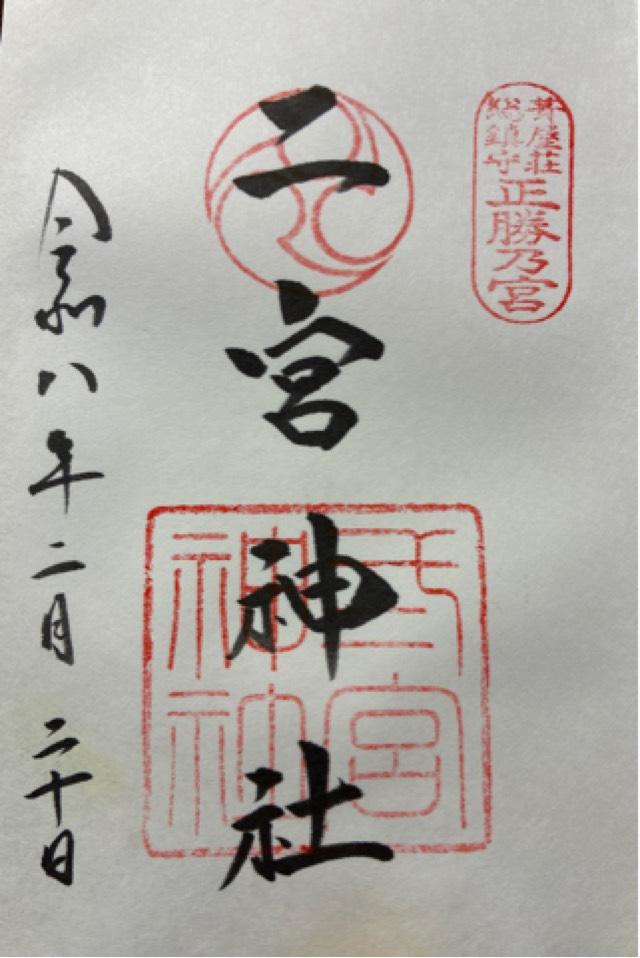 葺屋荘
総鎮守
正勝乃宮
二宮神社
令和八年二月二十日